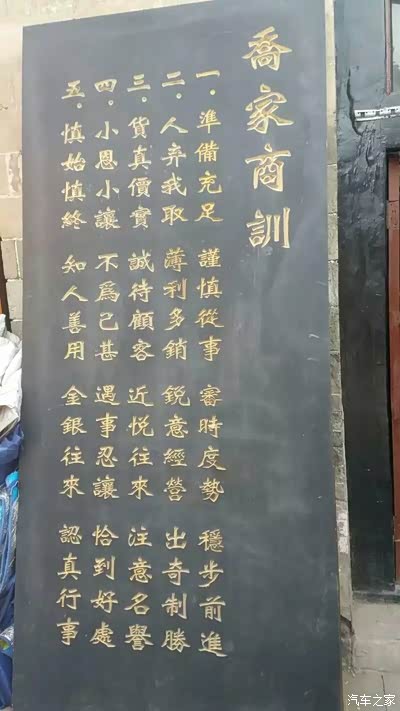 喬家商訓
一．準備充足 謹慎從事 審時度勢 穩步前進
二．人弃我取 薄利多銷 銳意經營 出奇制勝
三．貨真價實 誠待顧客 近悦往來 注意名譽
四．小恩小讓 不為己甚 遇事忍讓 恰到好處
五．慎始慎終 知人善用 金銀往來 認真行事
汽车之家